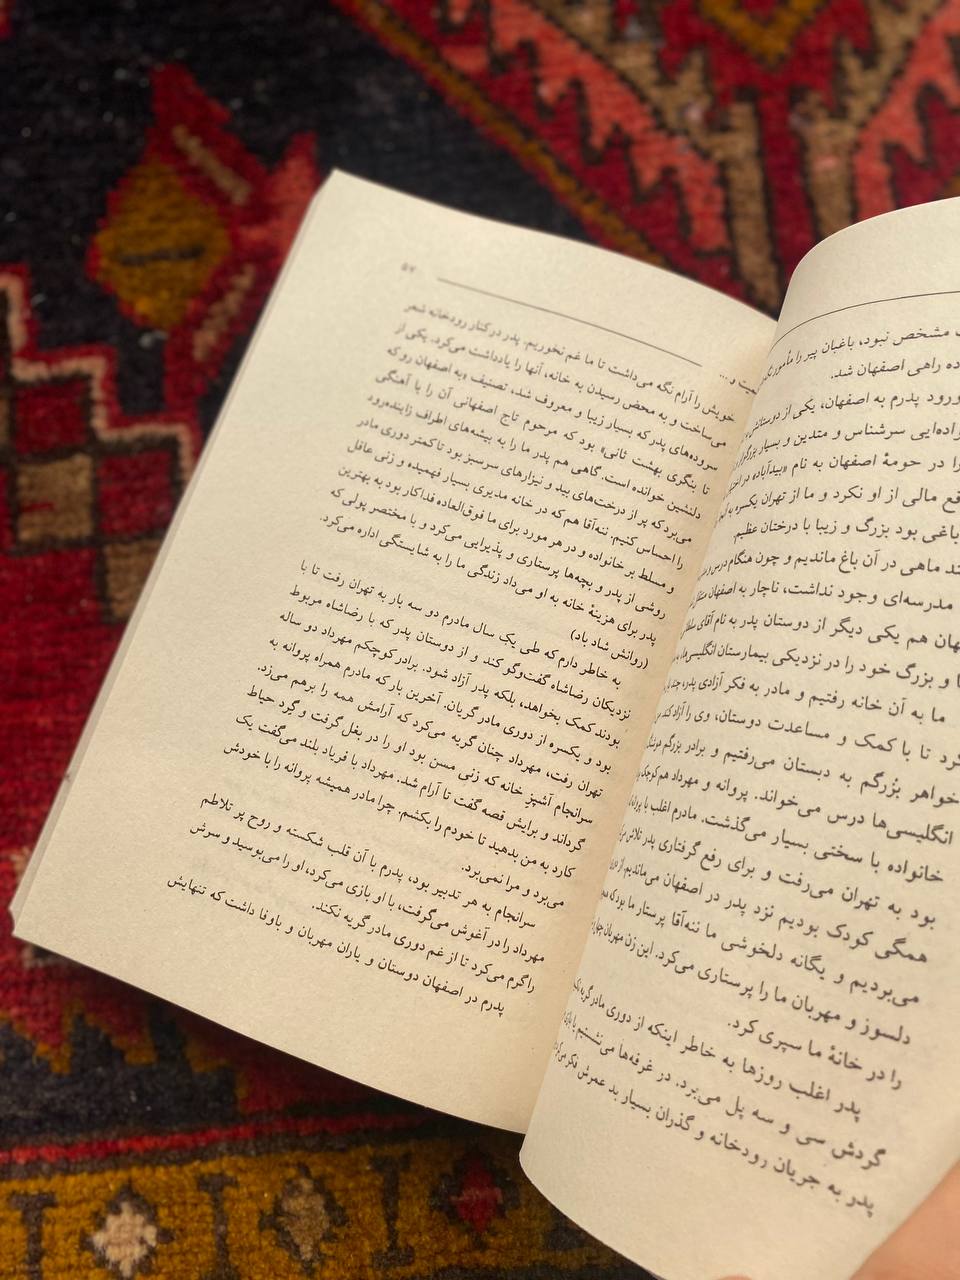 مشخص نبود، باغبان پیر را مأمور
راهی اصفهان شد.
ورود پدرم به اصفهان، یکی از دوستانش
سرشناس و متدین و بسیار بزرگوار
را در حومهٔ اصفهان به نام «بیدآباد» در
مالی از او نکرد و ما از تهران یکسره به
باغی بود بزرگ و زیبا با درختان عظیم.
ماهی در آن باغ ماندیم و چون هنگام درس و
مدرسه‌ای وجود نداشت، ناچار به اصفهان
هم یکی دیگر از دوستان پدر به نام آقای
و بزرگ خود را در نزدیکی بیمارستان انگلیسی‌ها
ما به آن خانه رفتیم و مادر به فکر آزادی پدر،
تا با کمک و مساعدت دوستان، وی را آزاد کند
خواهر بزرگم به دبستان می‌رفتیم و برادر بزرگم
انگلیسی‌ها درس می‌خواند. پروانه و مهرداد هم کوچک
خانواده با سختی بسیار می‌گذشت. مادرم اغلب با
بود به تهران می‌رفت و برای رفع گرفتاری پدر تلاش
همگی کودک بودیم نزد پدر در اصفهان می‌ماندیم. از
می‌بردیم و یگانه دلخوشی ما ننه‌آقا پرستار ما بود که
دلسوز و مهربان ما را پرستاری می‌کرد. این زن مهربان
را در خانهٔ ما سپری کرد.
پدر اغلب روزها به خاطر اینکه از دوری مادر گریه
گردش سی و سه پل می‌برد. در غرفه‌ها می‌نشستیم
پدر به جریان رودخانه و گذران بسیار بد عمرش فکر
۵۷
و...
خویش را آرام نگه می‌داشت تا ما غم نخوریم. پدر در کنار رودخانه شعر
می‌ساخت و به محض رسیدن به خانه، آنها را یادداشت می‌کرد. یکی از
سروده‌های پدر که بسیار زیبا و معروف شد، تصنیف «به اصفهان رو که
تا بنگری بهشت ثانی» بود که مرحوم تاج اصفهانی آن را با آهنگی
دلنشین خوانده است. گاهی هم پدر ما را به بیشه‌های اطراف زاینده‌رود
می‌برد که پر از درخت‌های بید و نیزارهای سرسبز بود تا کمتر دوری مادر
را احساس کنیم. ننه‌آقا هم که در خانه مدیری بسیار فهمیده و زنی عاقل
و مسلط بر خانواده و در هر مورد برای ما فوق‌العاده فداکار بود به بهترین
روشی از پدر و بچه‌ها پرستاری و پذیرایی می‌کرد و با مختصر پولی که
پدر برای هزینهٔ خانه به او می‌داد زندگی ما را به شایستگی اداره می‌کرد.
(روانش شاد باد)
به خاطر دارم که طی یک سال مادرم دو سه بار به تهران رفت تا با
نزدیکان رضاشاه گفت‌وگو کند و از دوستان پدر که با رضاشاه مربوط
بودند کمک بخواهد، بلکه پدر آزاد شود. برادر کوچکم مهرداد دو ساله
بود و یکسره از دوری مادر گریان. آخرین بار که مادرم همراه پروانه به
تهران رفت، مهرداد چنان گریه می‌کرد که آرامش همه را برهم می‌زد.
سرانجام آشپز خانه که زنی مسن بود او را در بغل گرفت و گرد حیاط
گرداند و برایش قصه گفت تا آرام شد. مهرداد با فریاد بلند می‌گفت یک
کارد به من بدهید تا خودم را بکشم. چرا مادر همیشه پروانه را با خودش
می‌برد و مرا نمی‌برد.
سرانجام به هر تدبیر بود، پدرم با آن قلب شکسته و روح پر تلاطم
مهرداد را در آغوش می‌گرفت، با او بازی می‌کرد، او را می‌بوسید و سرش
را گرم می‌کرد تا از غم دوری مادر گریه نکند.
پدرم در اصفهان دوستان و یاران مهربان و باوفا داشت که تنهایش